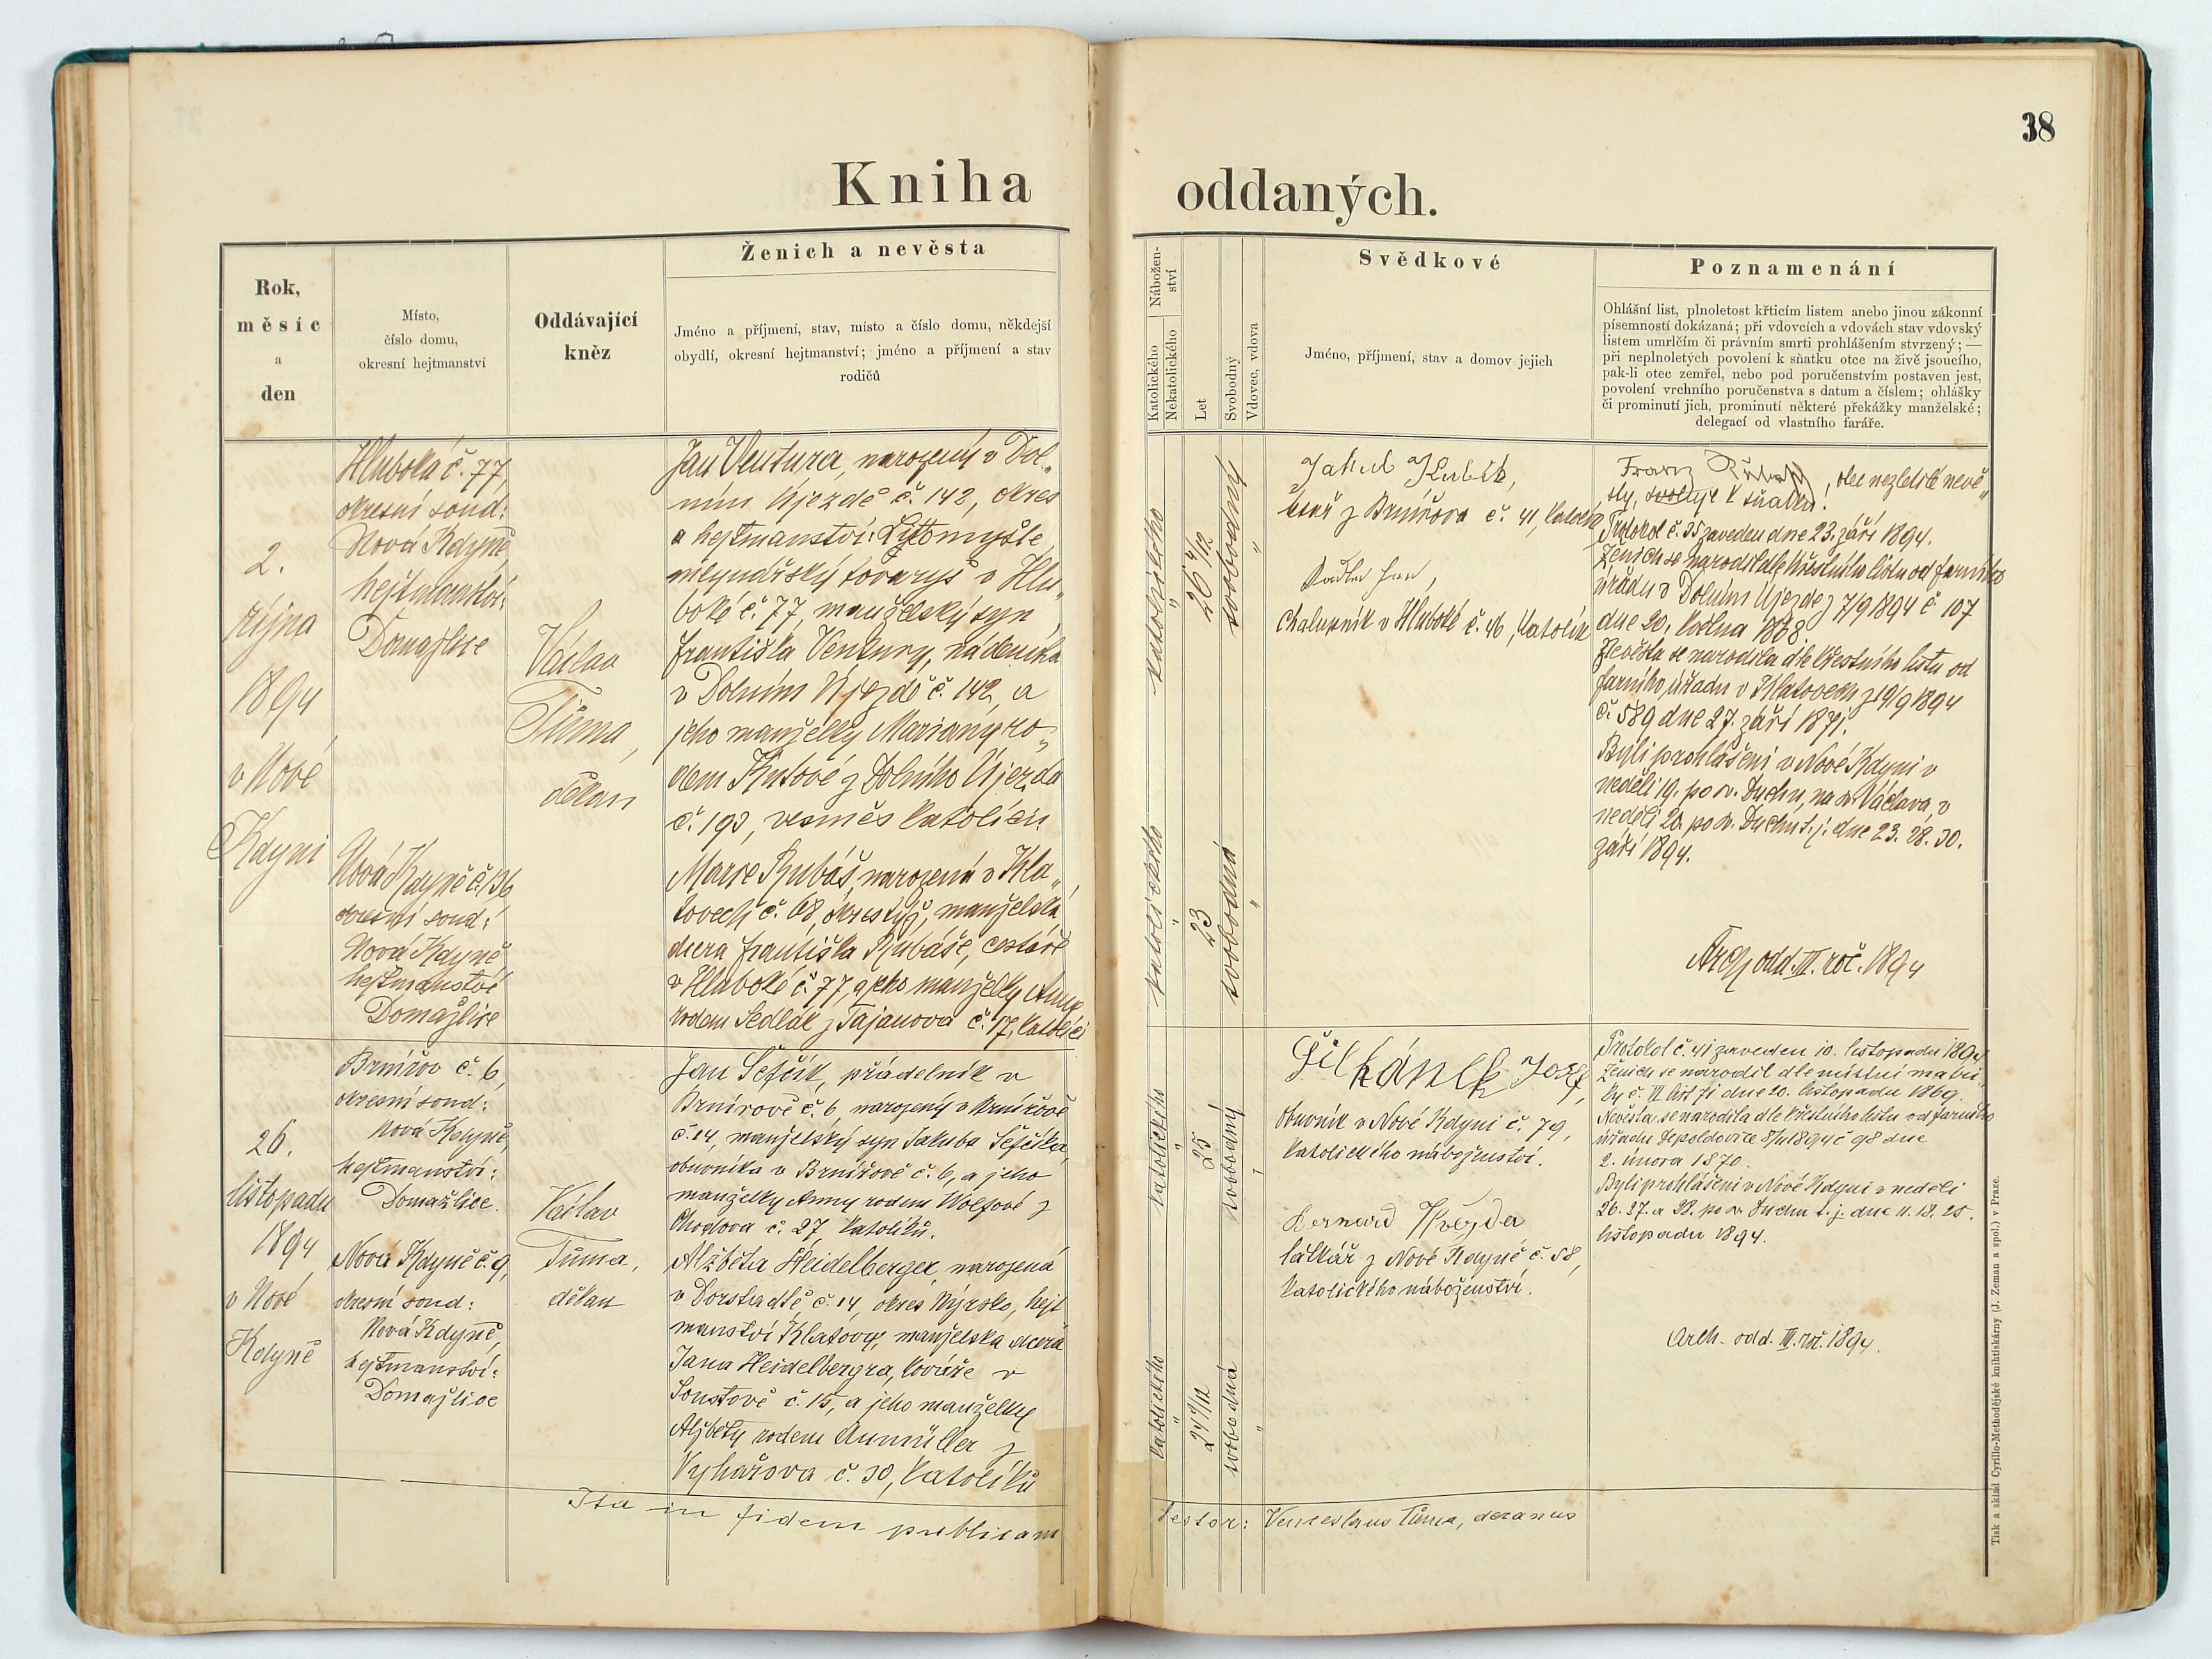 38
Kniha oddaných.
Rok,
měsíc
a
den
Místo,
číslo domu,
okresní hejtmanství
Oddávající
kněz
Ženich a nevěsta
Jméno a příjmení, stav, místo a číslo domu, někdejší
obydlí, okresní hejtmanství; jméno a příjmení a stav
rodičů
Nábožen-
ství
Katolického
Nekatolického
Let
Svobodný
Vdovec, vdova
Svědkové
Jméno, příjmení, stav a domov jejich
Poznamenání
Ohlášní list, plnoletost křticím listem anebo jinou zákonní
písemností dokázaná; při vdovcích a vdovách stav vdovský
listem umrlčím či právním smrti prohlášením stvrzený; —
při neplnoletých povolení k sňatku otce na živě jsoucího,
pak-li otec zemřel, nebo pod poručenstvím postaven jest,
povolení vrchního poručenstva s datum a číslem; ohlášky
či prominutí jich, prominutí některé překážky manželské;
delegací od vlastního faráře.
2.
října
1894
v Nové
Kdyni
Hluboká č. 77,
okresní soud:
Nová Kdyně,
hejtmanství:
Domažlice
Nová Kdyně č. 136,
okresní soud:
Nová Kdyně
hejtmanství
Domažlice
Václav
Tůma,
děkan
Jan Ventura, narozený v Dol„
ním Újezdě č. 142, okres
a hejtmanství: Lytomyšle,
mlynářský tovaryš v Hlu„
boké č. 77, manželský syn
Františka Ventury, nádeníka
v Dolním Újezdě č. 142, a
jeho manželky Mariany ro„
dem Kutové z Dolního Újezda
č. 193, vesměs katolíci.
Marie Rubáš, narozená v Kla„
tovech č. 68, okres týž, manželská
dcera Františka Rubáše, cestáře
v Hluboké č. 77, a jeho manželky Anny
rodem Sedlák z Tajanova č. 17, katolíci
katolického
"
26 4/12
svobodný
"
katolického
"
23
svobodná
"
Jakub Kubík,
z Brnířova č. 41, katolík
Kadlec Jan,
Chalupník v Hluboké č. 46, katolík
Franz Rubasch, otec nezletilé nevě„
sty, svoluje k sňatku!
Protokol č. 35 zaveden dne 23. září 1894.
Ženich se narodil dle křestního listu od farního
úřadu v Dolním Újezdě z 7/9 1894 č. 107
dne 20. května 1868
Nevěsta se narodila dle křestního listu od
farního úřadu v Klatovech z 19/9 1894
č. 589 dne 27. září 1871.
Byli prohlášeni v Nové Kdyni v
neděli 19. po sv. Duchu, na sv. Václava, v
neděli 20. po sv. Duchu t. j. dne 23. 28. 30.
září 1894.
Arch. odd. III. roč. 1894
26.
listopadu
1894
v Nové
Kdyně
Brnířov č. 6,
okresní soud:
Nová Kdyně,
hejtmanství:
Domažlice.
Nová Kdyně č. 9,
okresní soud:
Nová Kdyně,
hejtmanství:
Domažlice
Václav
Tůma,
děkan
Jan Šefčík, přádelník v
Brnírově č. 6, narozený v Brnířově
č. 14, manželský syn Jakuba Šefčíka,
obuvníka v Brnířově č. 6, a jeho
manželky Anny rodem Wolfové z
Chodova č. 27, katolíků.
Alžběta Heidelberger, narozená
v Dorstadtě č. 14, okres Nýrsko, hejt
manství Klatovy, manželská dcera
Jana Heidelbergra, kováře v
Soustově č. 15, a jeho manželky
Alžběty rodem Aumüller z
Vyhařova č. 30, katolíků
katolického
"
25
svobodný
"
katolického
"
24 9/12
svobodná
"
Josef,
obuvník v Nové Kdyni č. 79,
katolického náboženství.
Bernard Hvězda
látkář z Nové Kdyně č. 58,
katolického náboženství.
Protokol č. 41 zaveden 10. listopadu 1894
Ženich se narodil dle místní matri„
ky č. VI list 71 dne 20. listopadu 1869.
Nevěsta se narodila dle křestního listu od farního
úřadu Depoldovice 8/11 1894 č. 98 dne
2. února 1870.
Byli prohlášeni v Nové Kdyni v neděli
26. 27. a 28. po sv. Duchu t. j. dne 11. 18. 25.
listopadu 1894.
Arch. odd. III. roč. 1894.
Ita in fidem publicam
testor: Venceslaus Tůma, decanus
Tisk a sklad Cyrillo-Methodějské knihtiskárny (J. Zeman a spol.) v Praze.